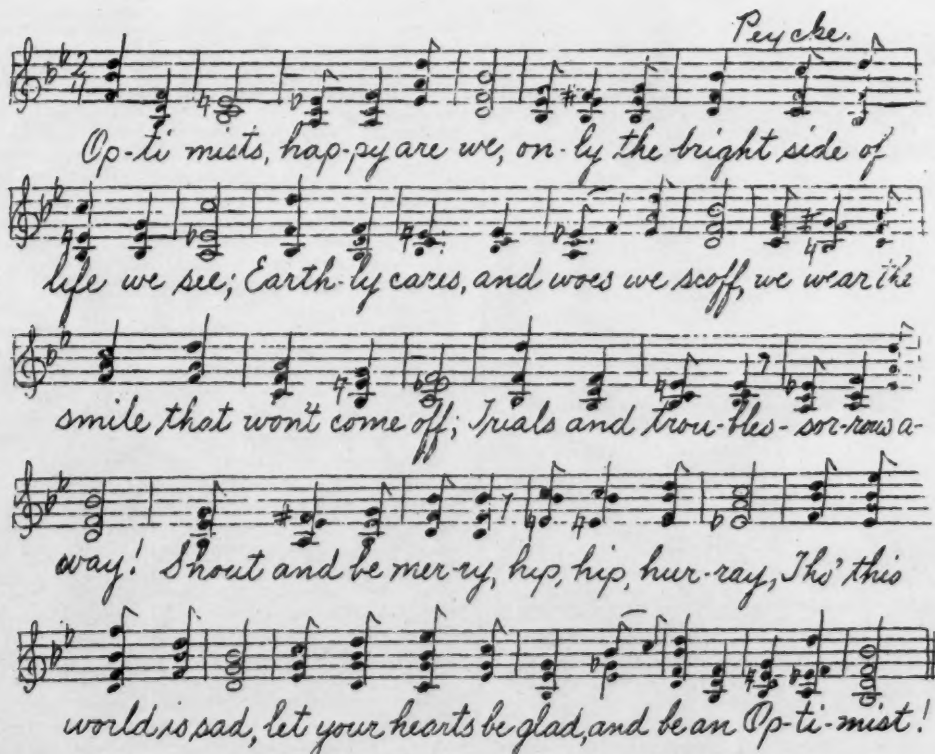 Peycke.
2
4
Op-ti mists, hap-py are we, on-ly the bright side of
life we see; Earth-ly cares, and woes we scoff, we wear the
smile that won't come off; Trials and trou-bles- sor-rows a-
way! Shout and be mer-ry, hip, hip, hur-ray, Tho' this
world is sad, let your hearts be glad, and be an Op-ti-mist!